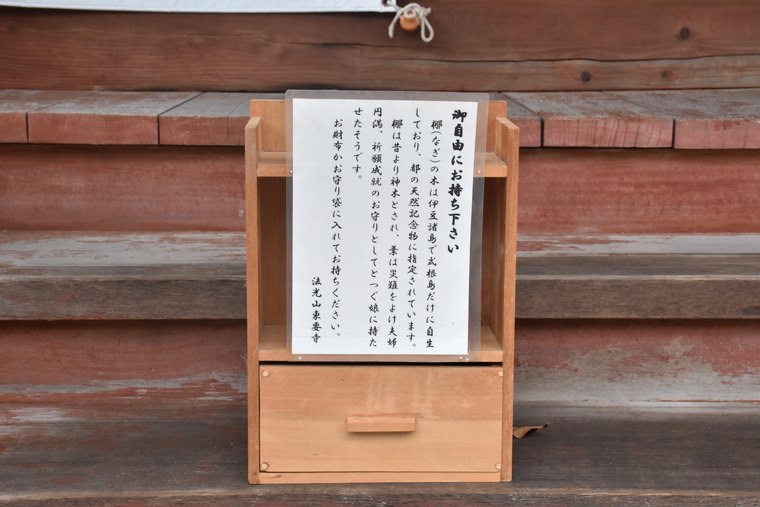 御自由にお持ち下さい
梛(なぎ)の木は伊豆諸島で式根島だけに自生
しており、都の天然記念物に指定されています。
梛は昔より神木とされ、葉は災難をよけ夫婦
円満、祈願成就のお守りとしてとつぐ娘に持た
せたそうです。
お財布かお守り袋に入れてお持ちください。
法光山東要寺